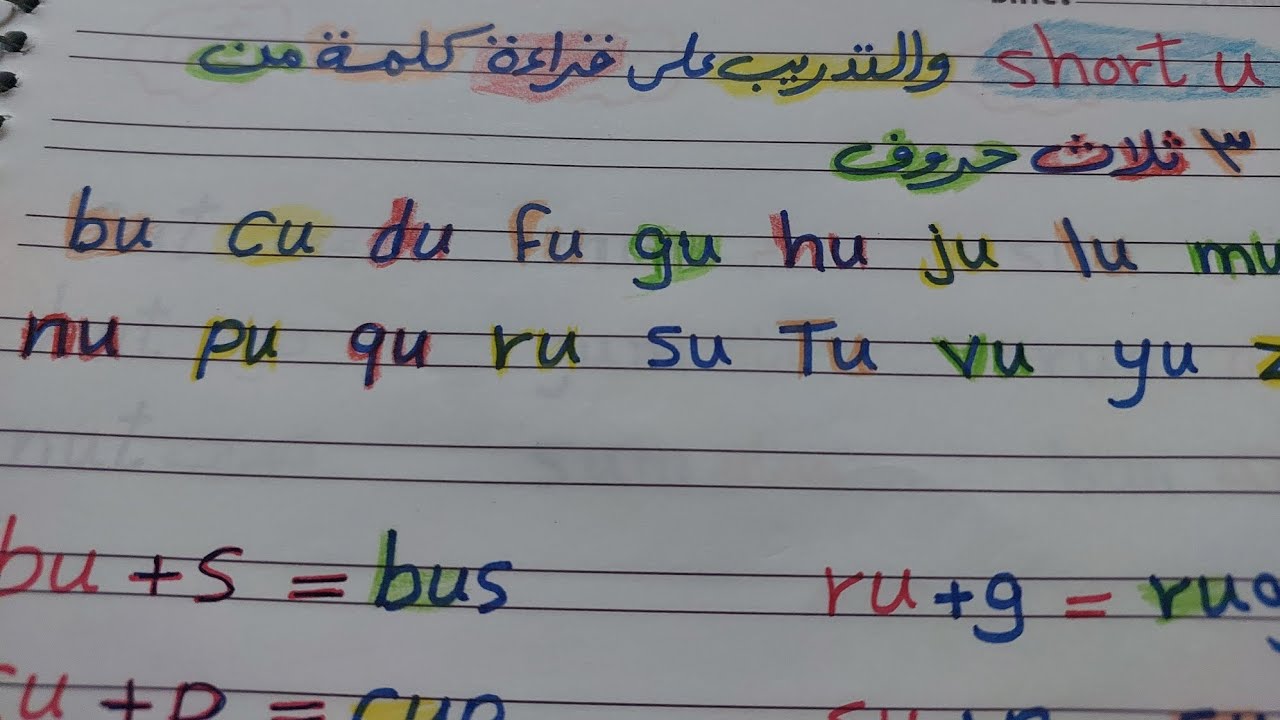 short u والتدريب على قراءة كلمة من
٣ ثلاث حروف
bu cu du fu gu hu ju lu mu
nu pu qu ru su Tu vu yu
bu + s = bus ru + g = rug
+ p = cup